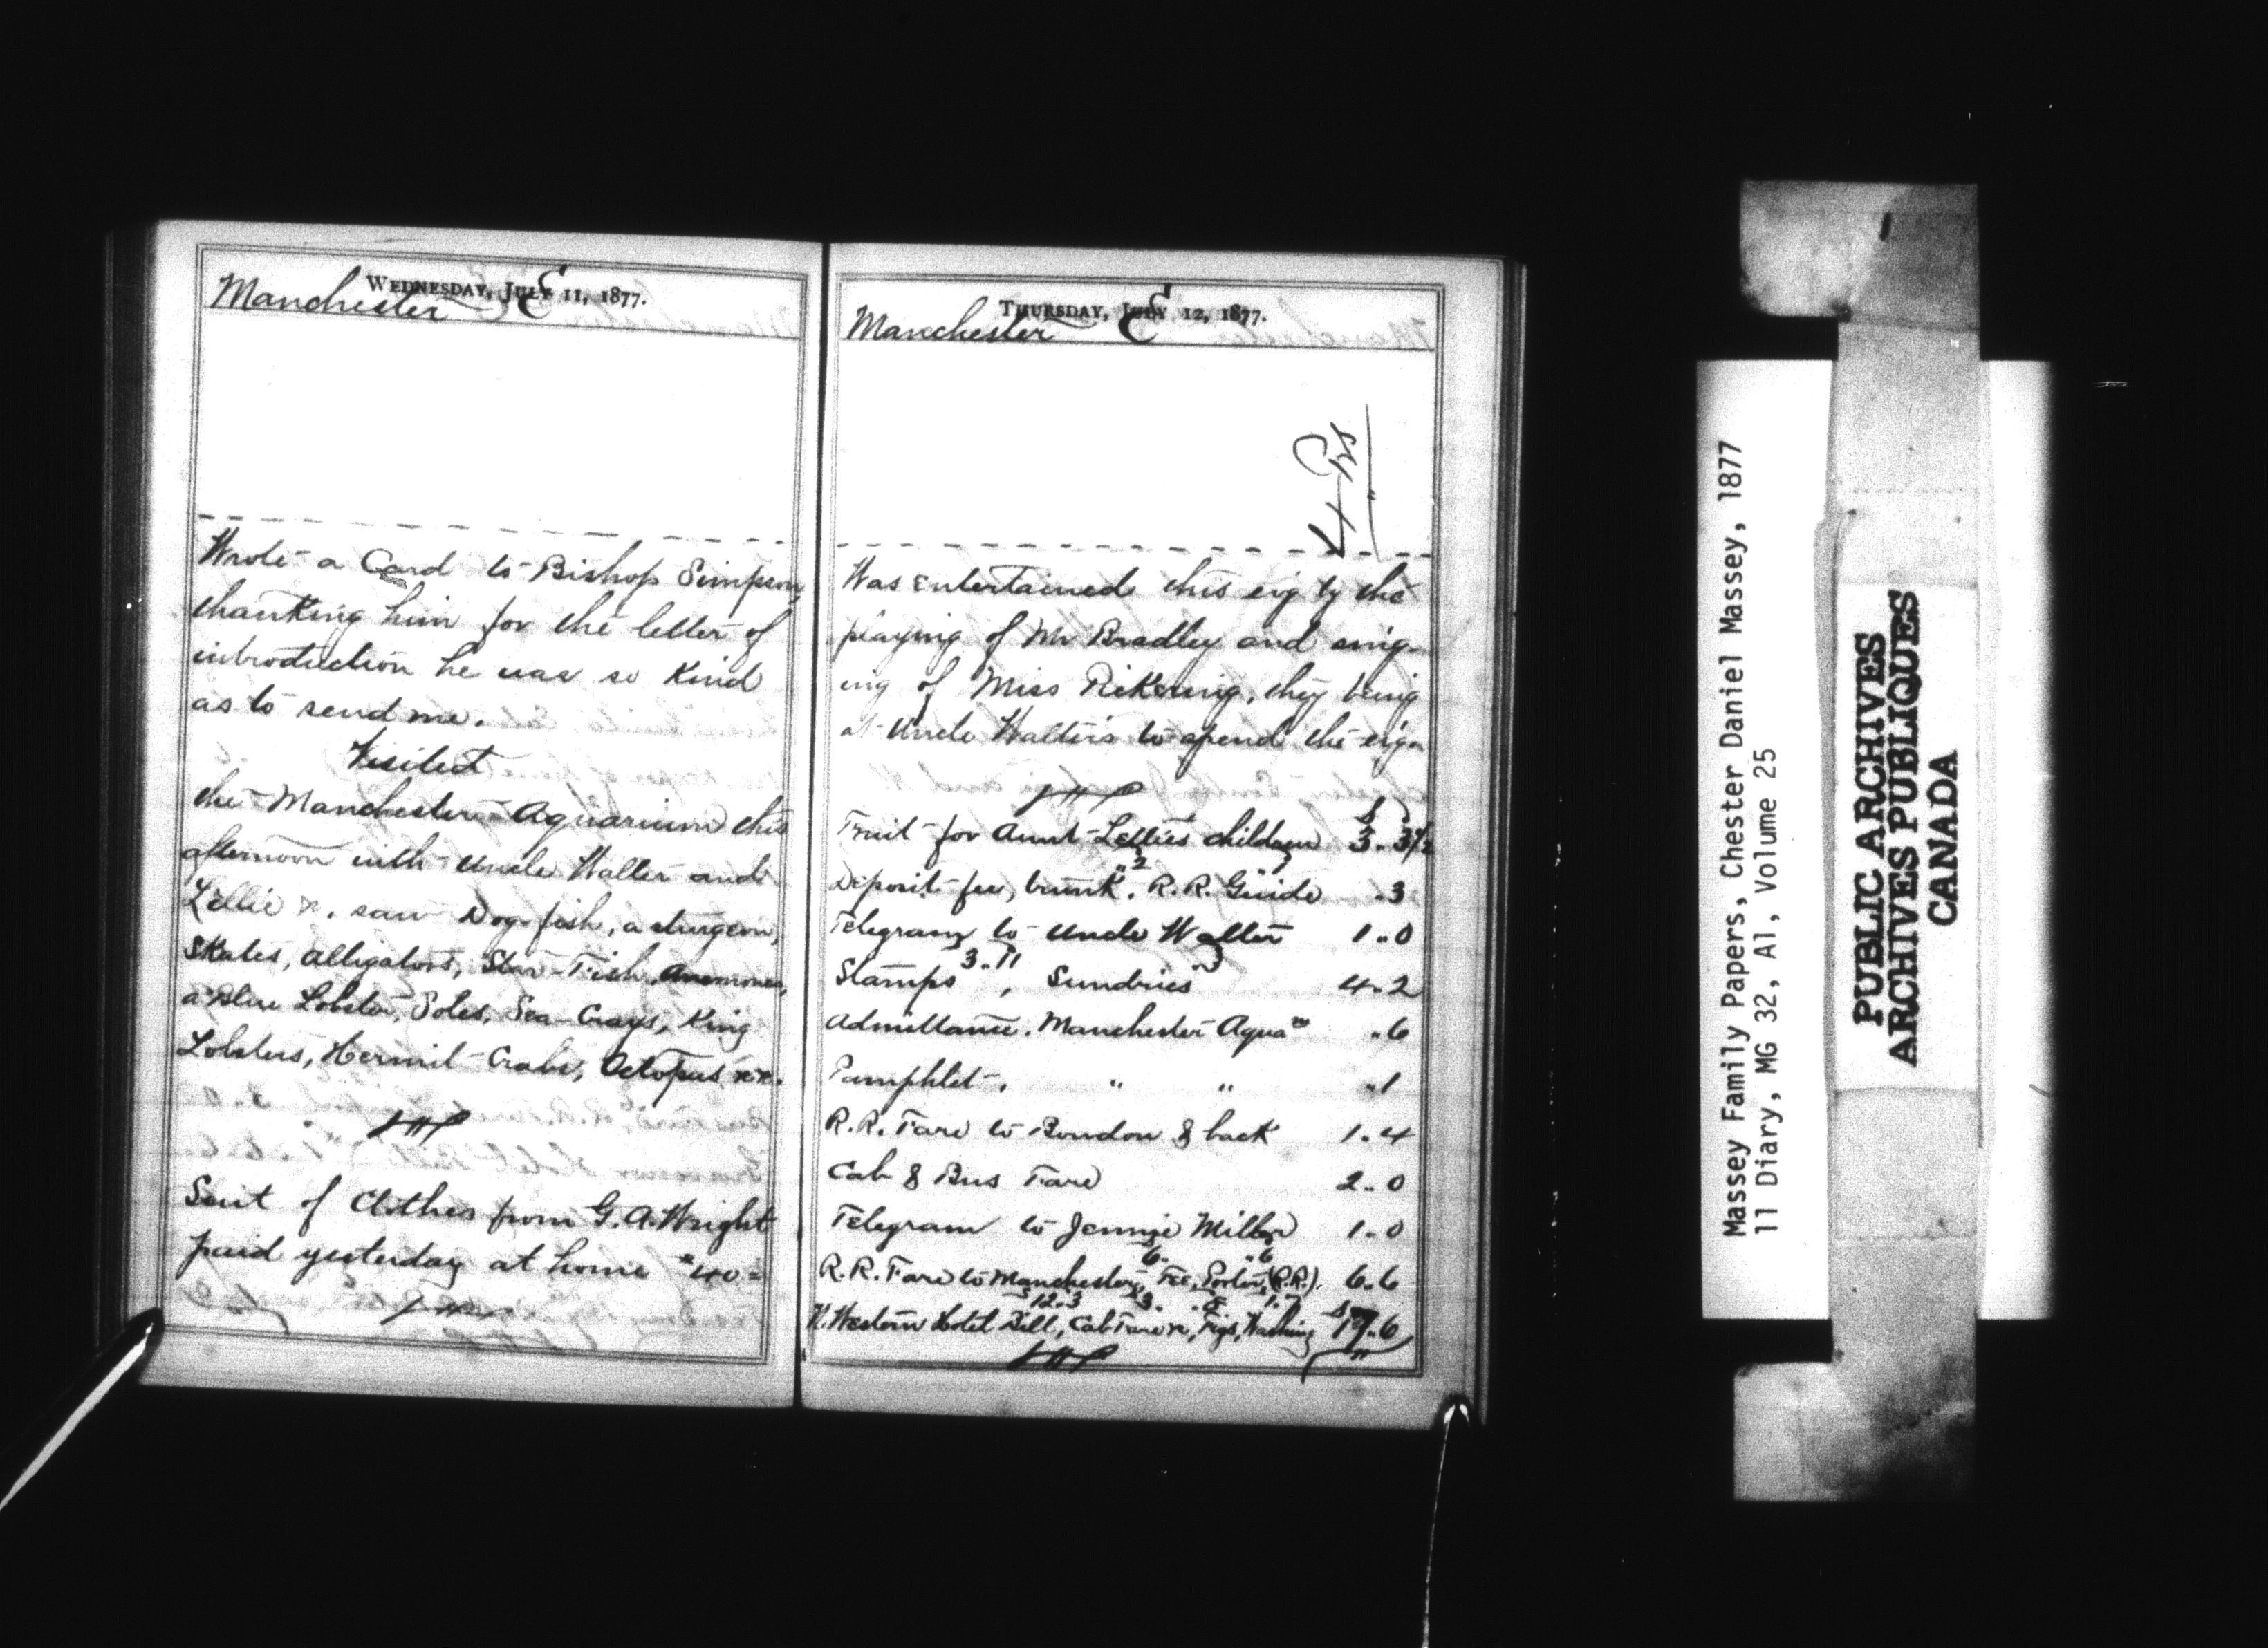 WEDNESDAY, JULY 11, 1877.
Manchester E
Wrote a Card to Bishop Simpson,
thanking him for the letter of
introduction he was so kind
as to send me.
Visited
the Manchester Aquarium this
afternoon with Uncle Walter and
Lellie &. saw Dog-fish, a sturgeon,
Skates, Alligators, Star-Fish, Anemones,
a Blue Lobster, Soles, Sea-Crays, King
Lobsters, Hermit-Crabs, Octopus &c.
Suit of Clothes from G.A. Wright
paid yesterday at home $40=
THURSDAY, JULY 12, 1877.
Manchester E
4 Prs
Was entertained this evg by the
playing of Mr Bradley and sing-
ing of Miss Pickering, they being
at Uncle Walter's to spend the evg.
s d
Fruit for Aunt Lettie's children 3.. 3 1/2
..2 ..1
Deposit fee, trunk. R.R. Guide ..3
Telegram to Uncle Walter 1..0
3..11 ..3
Stamps, Sundries 4..2
Admittance. Manchester Aqua^m ..6
Pamphlet. " " ..1
R.R. Fare to Bowdon & back 1..4
Cab & Bus Fare 2..0
Telegram to Jennie Miller 1..0
6.. ..6
R.R. Fare to Manchester, Fee, Porter, (R.R.). 6..6
12..3 3.. ..8 1..7
N. Western Hotel Bill, Cab Fare &, Figs, Washing 17..6
Massey Family Papers, Chester Daniel Massey, 1877
11 Diary, MG 32, A1, Volume 25
PUBLIC ARCHIVES
ARCHIVES PUBLIQUES
CANADA